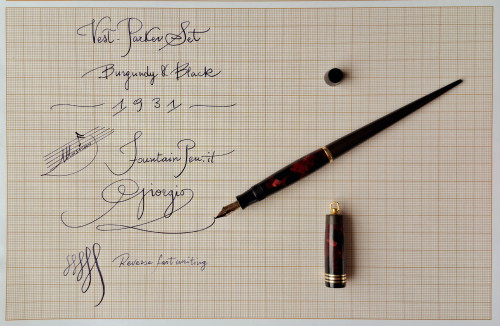 Vest-Parker Set
Burgundy & Black
1931
FountainPen.it
Giorgio
Reverse fast writing